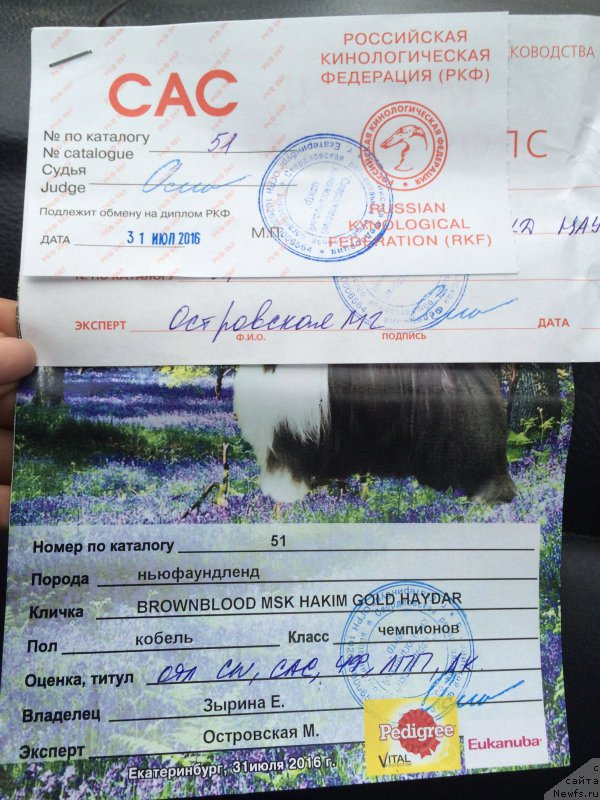 САС
РОССИЙСКАЯ
КИНОЛОГИЧЕСКАЯ
ФЕДЕРАЦИЯ (РКФ)
№ по каталогу
№ catalogue 51
Судья
Judge
Подлежит обмену на диплом РКФ
ДАТА 31 ИЮЛ 2016 М.П.
RUSSIAN
KYNOLOGICAL
FEDERATION (RKF)
КОВОДСТВА
ПС
ЭКСПЕРТ Островская М Г ДАТА
Ф.И.О. ПОДПИСЬ
Номер по каталогу 51
Порода ньюфаундленд
Кличка BROWNBLOOD MSK HAKIM GOLD HAYDAR
Пол кобель Класс чемпионов
Оценка, титул отл CW, CAC, ЧФ, ЛПП, ЛК
Владелец Зырина Е.
Эксперт Островская М.
Pedigree
VITAL
Eukanuba
Екатеринбург, 31июля 2016 г.
с
сайта
Newfs.ru